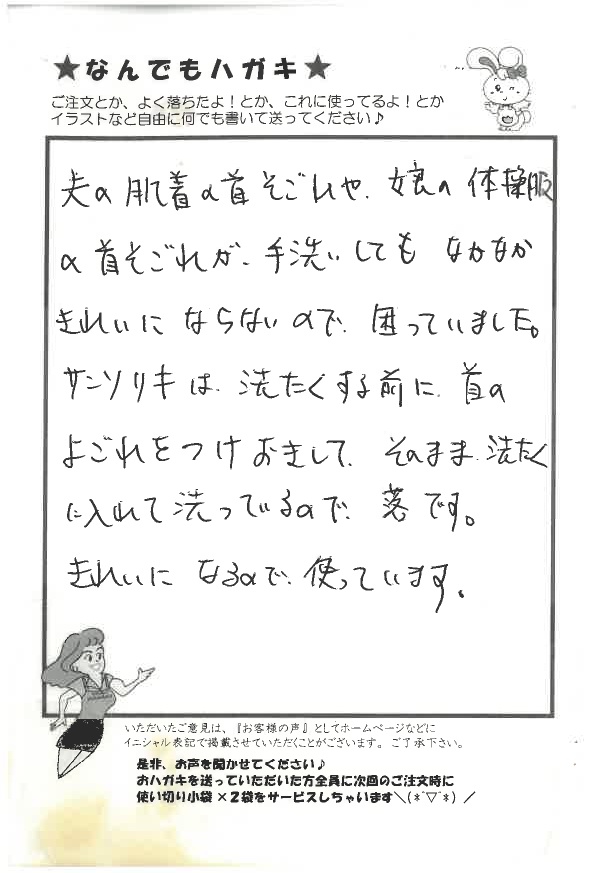 ★なんでもハガキ★
ご注文とか、よく落ちたよ！とか、これに使ってるよ！とか
イラストなど自由に何でも書いて送ってください♪
夫の肌着の首そごれや、娘の体操服
の首そごれが、手洗いしても なかなか
きれいにならないので、困っていました。
サンソリキは、洗たくする前に、首の
よごれをつけおきして、そのまま、洗たく
に入れて洗っているので、落です。
きれいになるので、使っています。
いただいたご意見は、『お客様の声』としてホームページなどに
イニシャル表記で掲載させていただくことがございます。ご了承下さい。
是非、お声を聞かせてください♪
おハガキを送っていただいた方全員に次回のご注文時に
使い切り小袋×２袋をサービスしちゃいます＼(*ﾟ▽ﾟ*)／